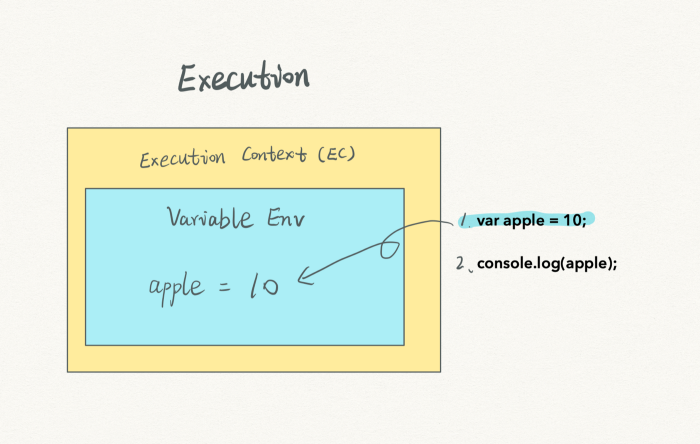 Execution
Execution Context (EC)
Variable Env
apple = 10
1. var apple = 10;
2. console.log(apple);